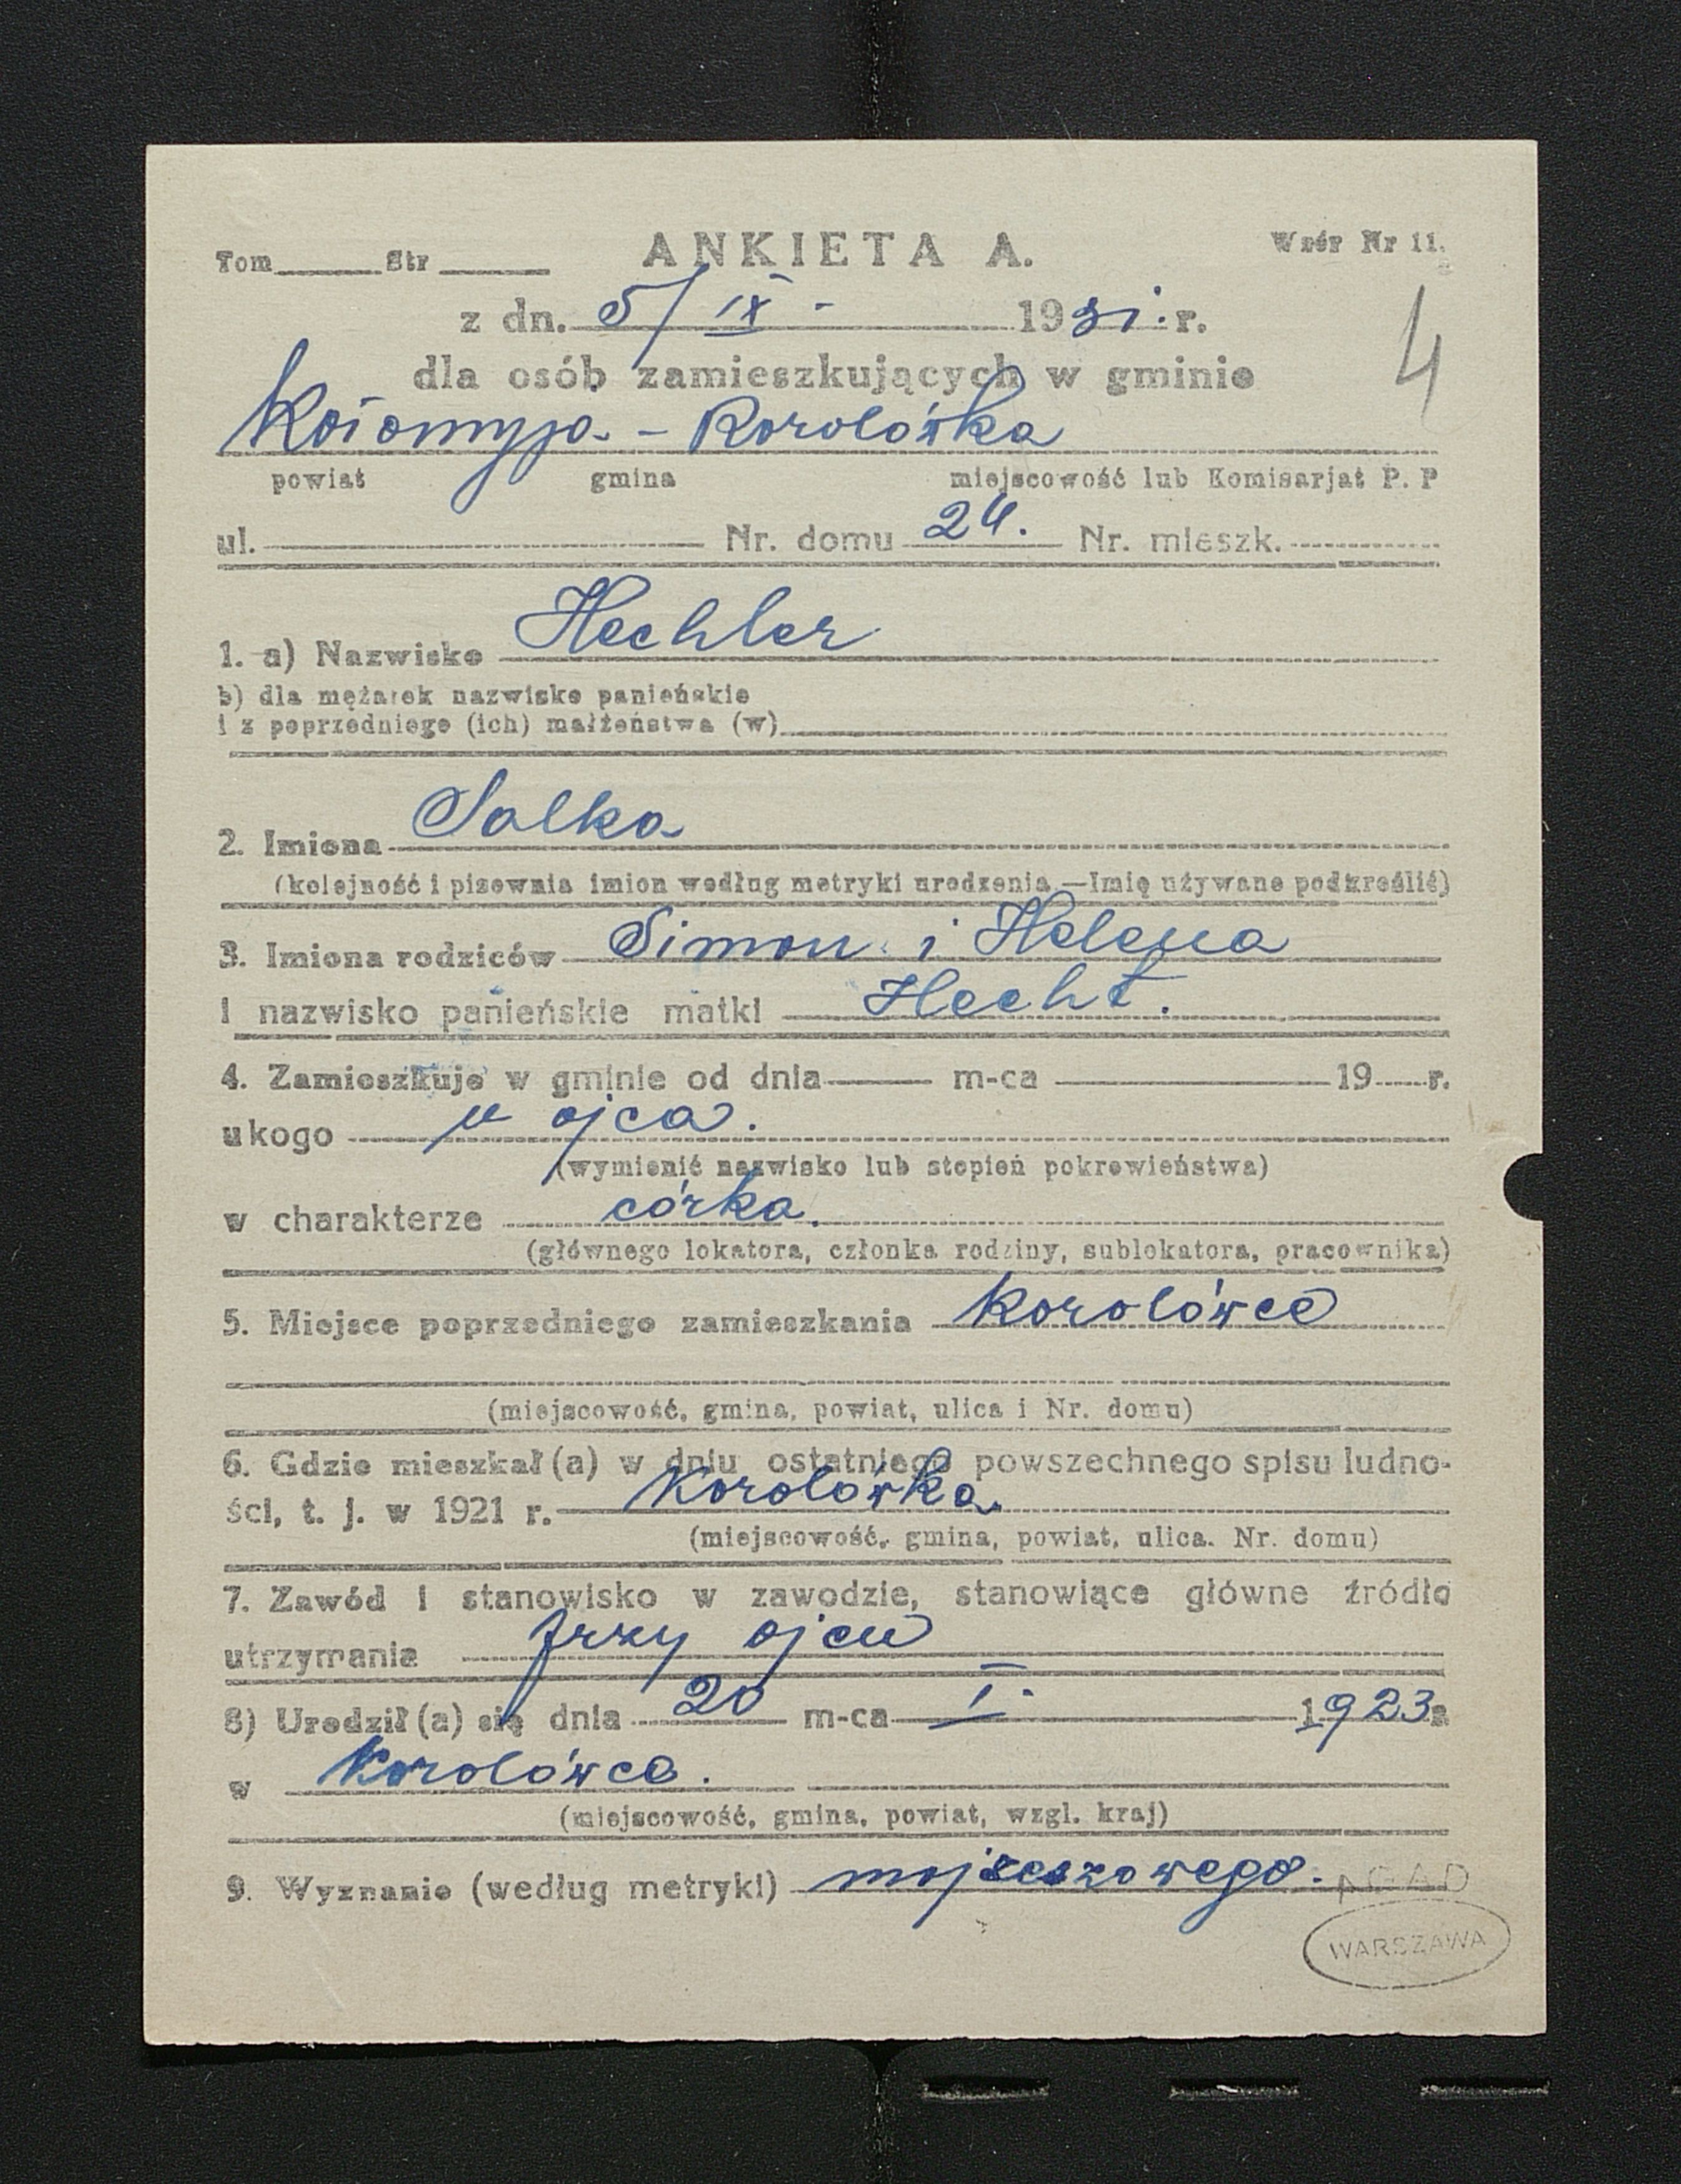 Tom Str ANKIETA A. Wzór Nr 11.
z dn. 5/IX - 1931. r.
4
dla osób zamieszkujących w gminie
Kołomyja. - Korolówka
powiat gmina miejscowość lub Komisarjat P. P
ul. Nr. domu 24. Nr. mieszk.
1. a) Nazwisko Hechler
b) dla mężatek nazwisko panieńskie
i z poprzedniego (ich) małżeństwa (w)
2. Imiona Salka
(kolejność i pisownia imion według metryki urodzenia —Imię używane podkreślić)
3. Imiona rodziców Simon i Helena
i nazwisko panieńskie matki Hecht.
4. Zamieszkuje w gminie od dnia m-ca 19 r.
u kogo u ojca.
(wymienić nazwisko lub stopień pokrewieństwa)
w charakterze córka.
(głównego lokatora, członka rodziny, sublokatora, pracownika)
5. Miejsce poprzedniego zamieszkania Korolówce
(miejscowość, gmina, powiat, ulica i Nr. domu)
6. Gdzie mieszkał(a) w dniu ostatniego powszechnego spisu ludno-
ści, t. j. w 1921 r. Korolówka.
(miejscowość, gmina, powiat, ulica. Nr. domu)
7. Zawód i stanowisko w zawodzie, stanowiące główne źródło
utrzymania przy ojcu
8) Urodził(a) się dnia 20 m-ca I. 1923
w Korolówce.
(miejscowość, gmina, powiat, wzgl. kraj)
9. Wyznanie (według metryki) mojżeszowego.
AGAD
WARSZAWA